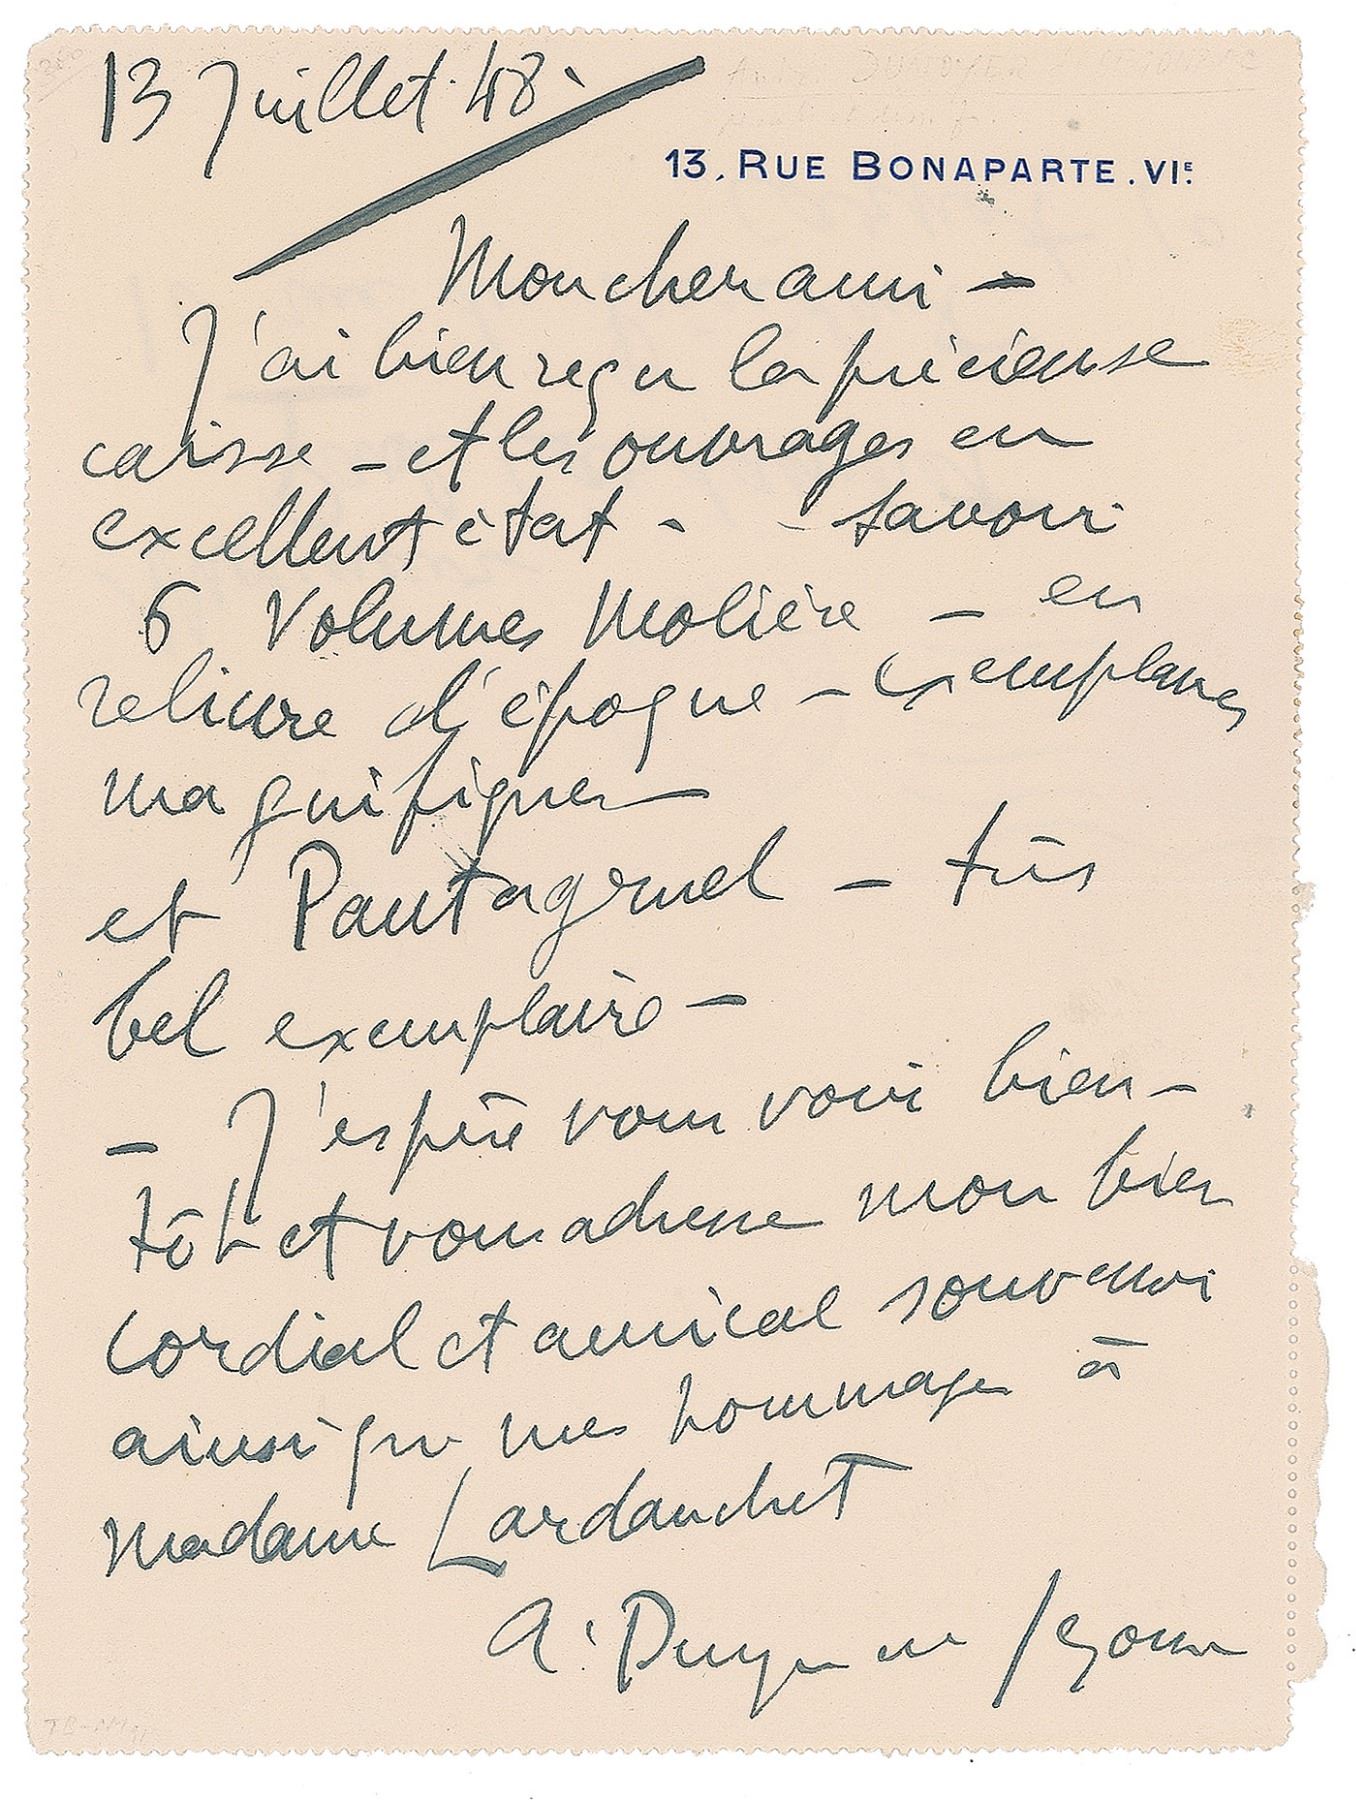 13 Juillet 48.
13, RUE BONAPARTE. VIE.
Mon cher ami —
J'ai bien reçu la précieuse
caisse — et les ouvrages en
excellent état - - savoir
6 Volumes Molière — en
reliure d'époque — exemplaires
magnifiques —
et Pantagruel — très
bel exemplaire —
— J'espère vous voir bien-
tôt et vous adresse mon bien
cordial et amical souvenir
ainsi que mes hommages à
Madame Lardanchet
A. Dunoyer de Segonzac